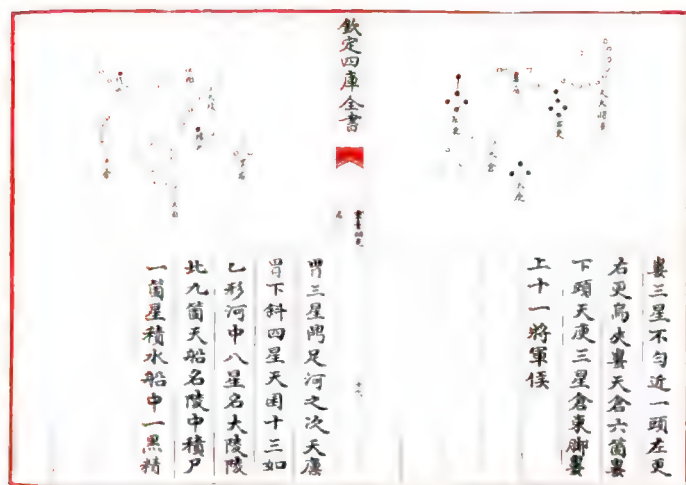 天大將軍
右更
左更
天倉
天庾
婁三星不勻近一頭左更
右更烏夾婁天倉六箇婁
下頭天庾三星倉東脚婁
上十一將軍侯
欽定四庫全書
大陵
積尸
天囷
胃三星鼎足河之次天廩
胃下斜四星天囷十三如
乙形河中八星名大陵陵
北九箇天船名陵中積尸
一箇星積水船中一黒精